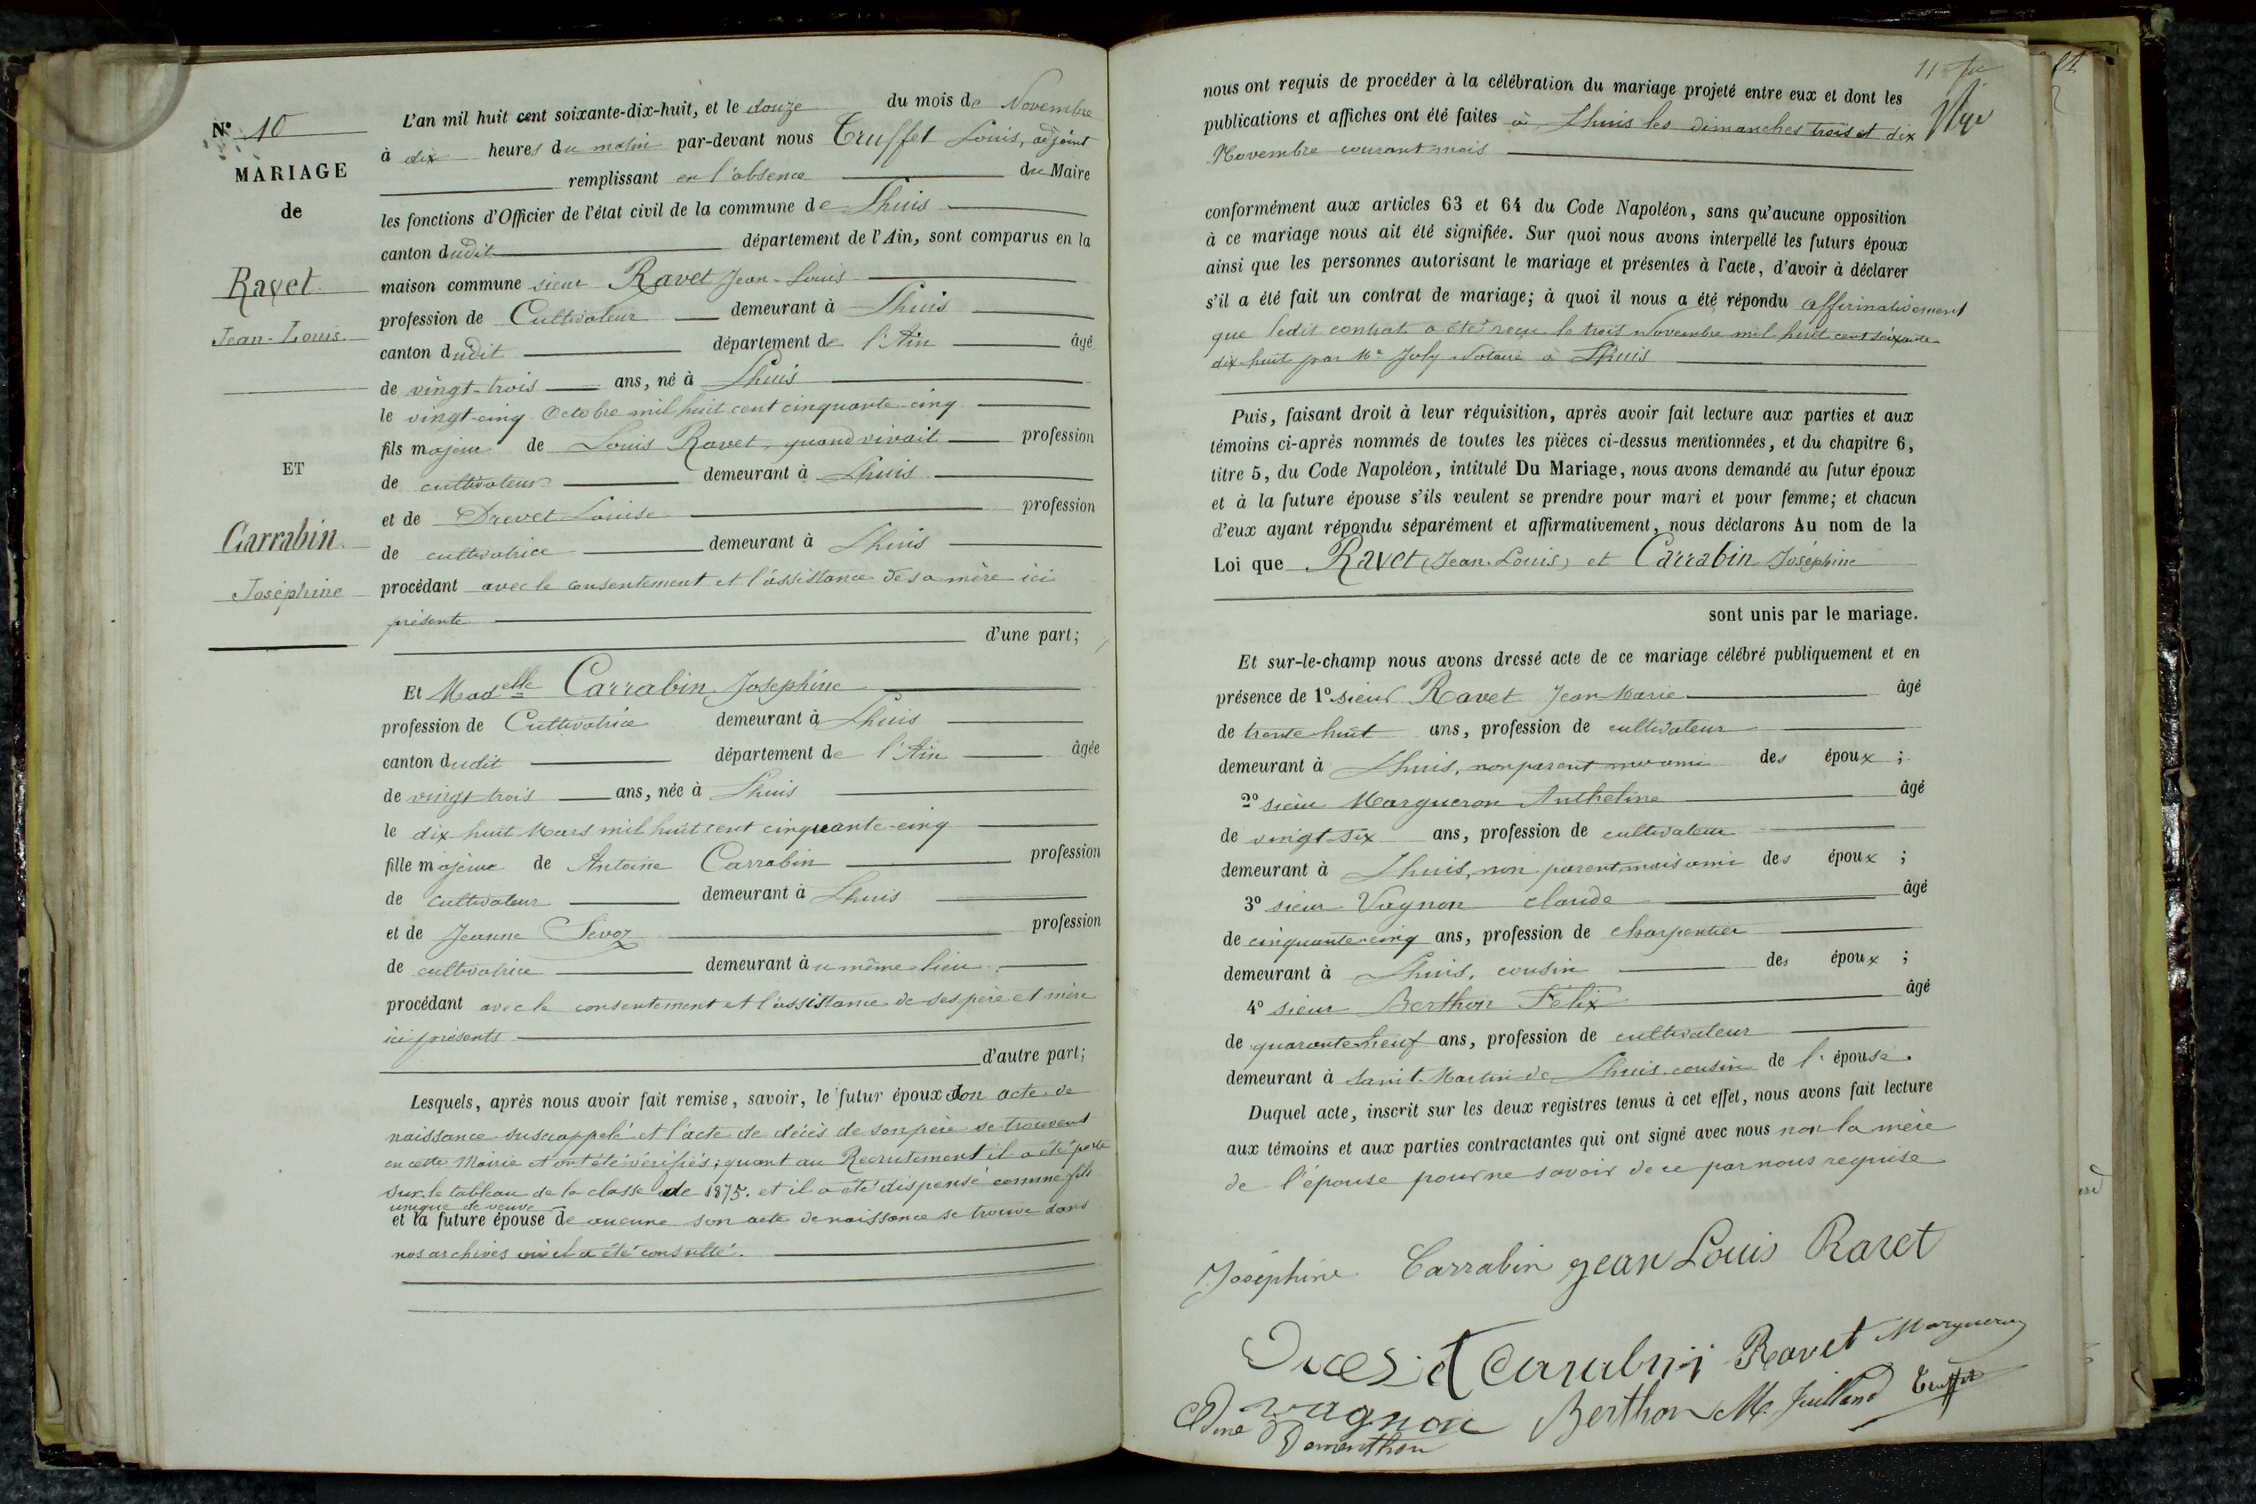 N° 10
MARIAGE
de
Ravet
Jean-Louis
ET
Carrabin
Joséphine
L'an mil huit cent soixante-dix-huit, et le douze du mois de Novembre
à dix heures du matin par-devant nous Truffet Louis, adjoint
remplissant en l'absence du Maire
les fonctions d'Officier de l'état civil de la commune de Lhuis
canton dudit département de l'Ain, sont comparus en la
maison commune sieur Ravet Jean-Louis
profession de Cultivateur demeurant à Lhuis
canton dudit département de l'Ain âgé
de vingt-trois ans, né à Lhuis
le vingt-cinq Octobre mil huit cent cinquante-cinq
fils majeur de Louis Ravet, quand vivait profession
de cultivateur demeurant à Lhuis
et de Drevet Louise profession
de cultivatrice demeurant à Lhuis
procédant avec le consentement et l'assistance de sa mère ici
présente
d'une part;
Et Madelle Carrabin Joséphine
profession de Cultivatrice demeurant à Lhuis
canton dudit département de l'Ain âgée
de vingt trois ans, née à Lhuis
le dix-huit Mars mil huit cent cinquante-cinq
fille majeure de Antoine Carrabin profession
de cultivateur demeurant à Lhuis
et de Jeanne Sevoz profession
de cultivatrice demeurant au même lieu
procédant avec le consentement et l'assistance de ses père et mère
ici présents
d'autre part;
Lesquels, après nous avoir fait remise, savoir, le futur époux son acte de
naissance susrappelé et l'acte de décès de son père se trouvent
en cette Mairie et ont été vérifiés; quant au Recrutement il a été porté
sur le tableau de la classe de 1875. et il a été dispensé comme fils
unique de veuve
et la future épouse de aucune son acte de naissance se trouve dans
nos archives où il a été consulté.
11
nous ont requis de procéder à la célébration du mariage projeté entre eux et dont les
publications et affiches ont été faites à Lhuis les dimanches trois et dix
Novembre courant mois
conformément aux articles 63 et 64 du Code Napoléon, sans qu'aucune opposition
à ce mariage nous ait été signifiée. Sur quoi nous avons interpellé les futurs époux
ainsi que les personnes autorisant le mariage et présentes à l'acte, d'avoir à déclarer
s'il a été fait un contrat de mariage; à quoi il nous a été répondu affirmativement
que ledit contrat a été reçu le trois Novembre mil huit cent soixante
dix-huit par Me Joly Notaire à Lhuis
Puis, faisant droit à leur réquisition, après avoir fait lecture aux parties et aux
témoins ci-après nommés de toutes les pièces ci-dessus mentionnées, et du chapitre 6,
titre 5, du Code Napoléon, intitulé Du Mariage, nous avons demandé au futur époux
et à la future épouse s'ils veulent se prendre pour mari et pour femme; et chacun
d'eux ayant répondu séparément et affirmativement, nous déclarons Au nom de la
Loi que Ravet (Jean-Louis) et Carrabin Joséphine
sont unis par le mariage.
Et sur-le-champ nous avons dressé acte de ce mariage célébré publiquement et en
présence de 1° sieur Ravet Jean Marie âgé
de trente huit ans, profession de cultivateur
demeurant à Lhuis, non parent mais ami des époux ;
2° sieur Margueron Anthelme âgé
de vingt-six ans, profession de cultivateur
demeurant à Lhuis, non parent mais ami des époux ;
3° sieur Vagnon Claude âgé
de cinquante-cinq ans, profession de charpentier
demeurant à Lhuis, cousin des époux ;
4° sieur Berthon Félix âgé
de quarante-neuf ans, profession de cultivateur
demeurant à Saint-Martin de Lhuis cousin de l'épouse.
Duquel acte, inscrit sur les deux registres tenus à cet effet, nous avons fait lecture
aux témoins et aux parties contractantes qui ont signé avec nous non la mère
de l'épouse pour ne savoir de ce par nous requise
Joséphine Carrabin Jean Louis Ravet
Carrabin Ravet Margueron
Vagnon Berthon M. Juilland Truffet
Dementhon